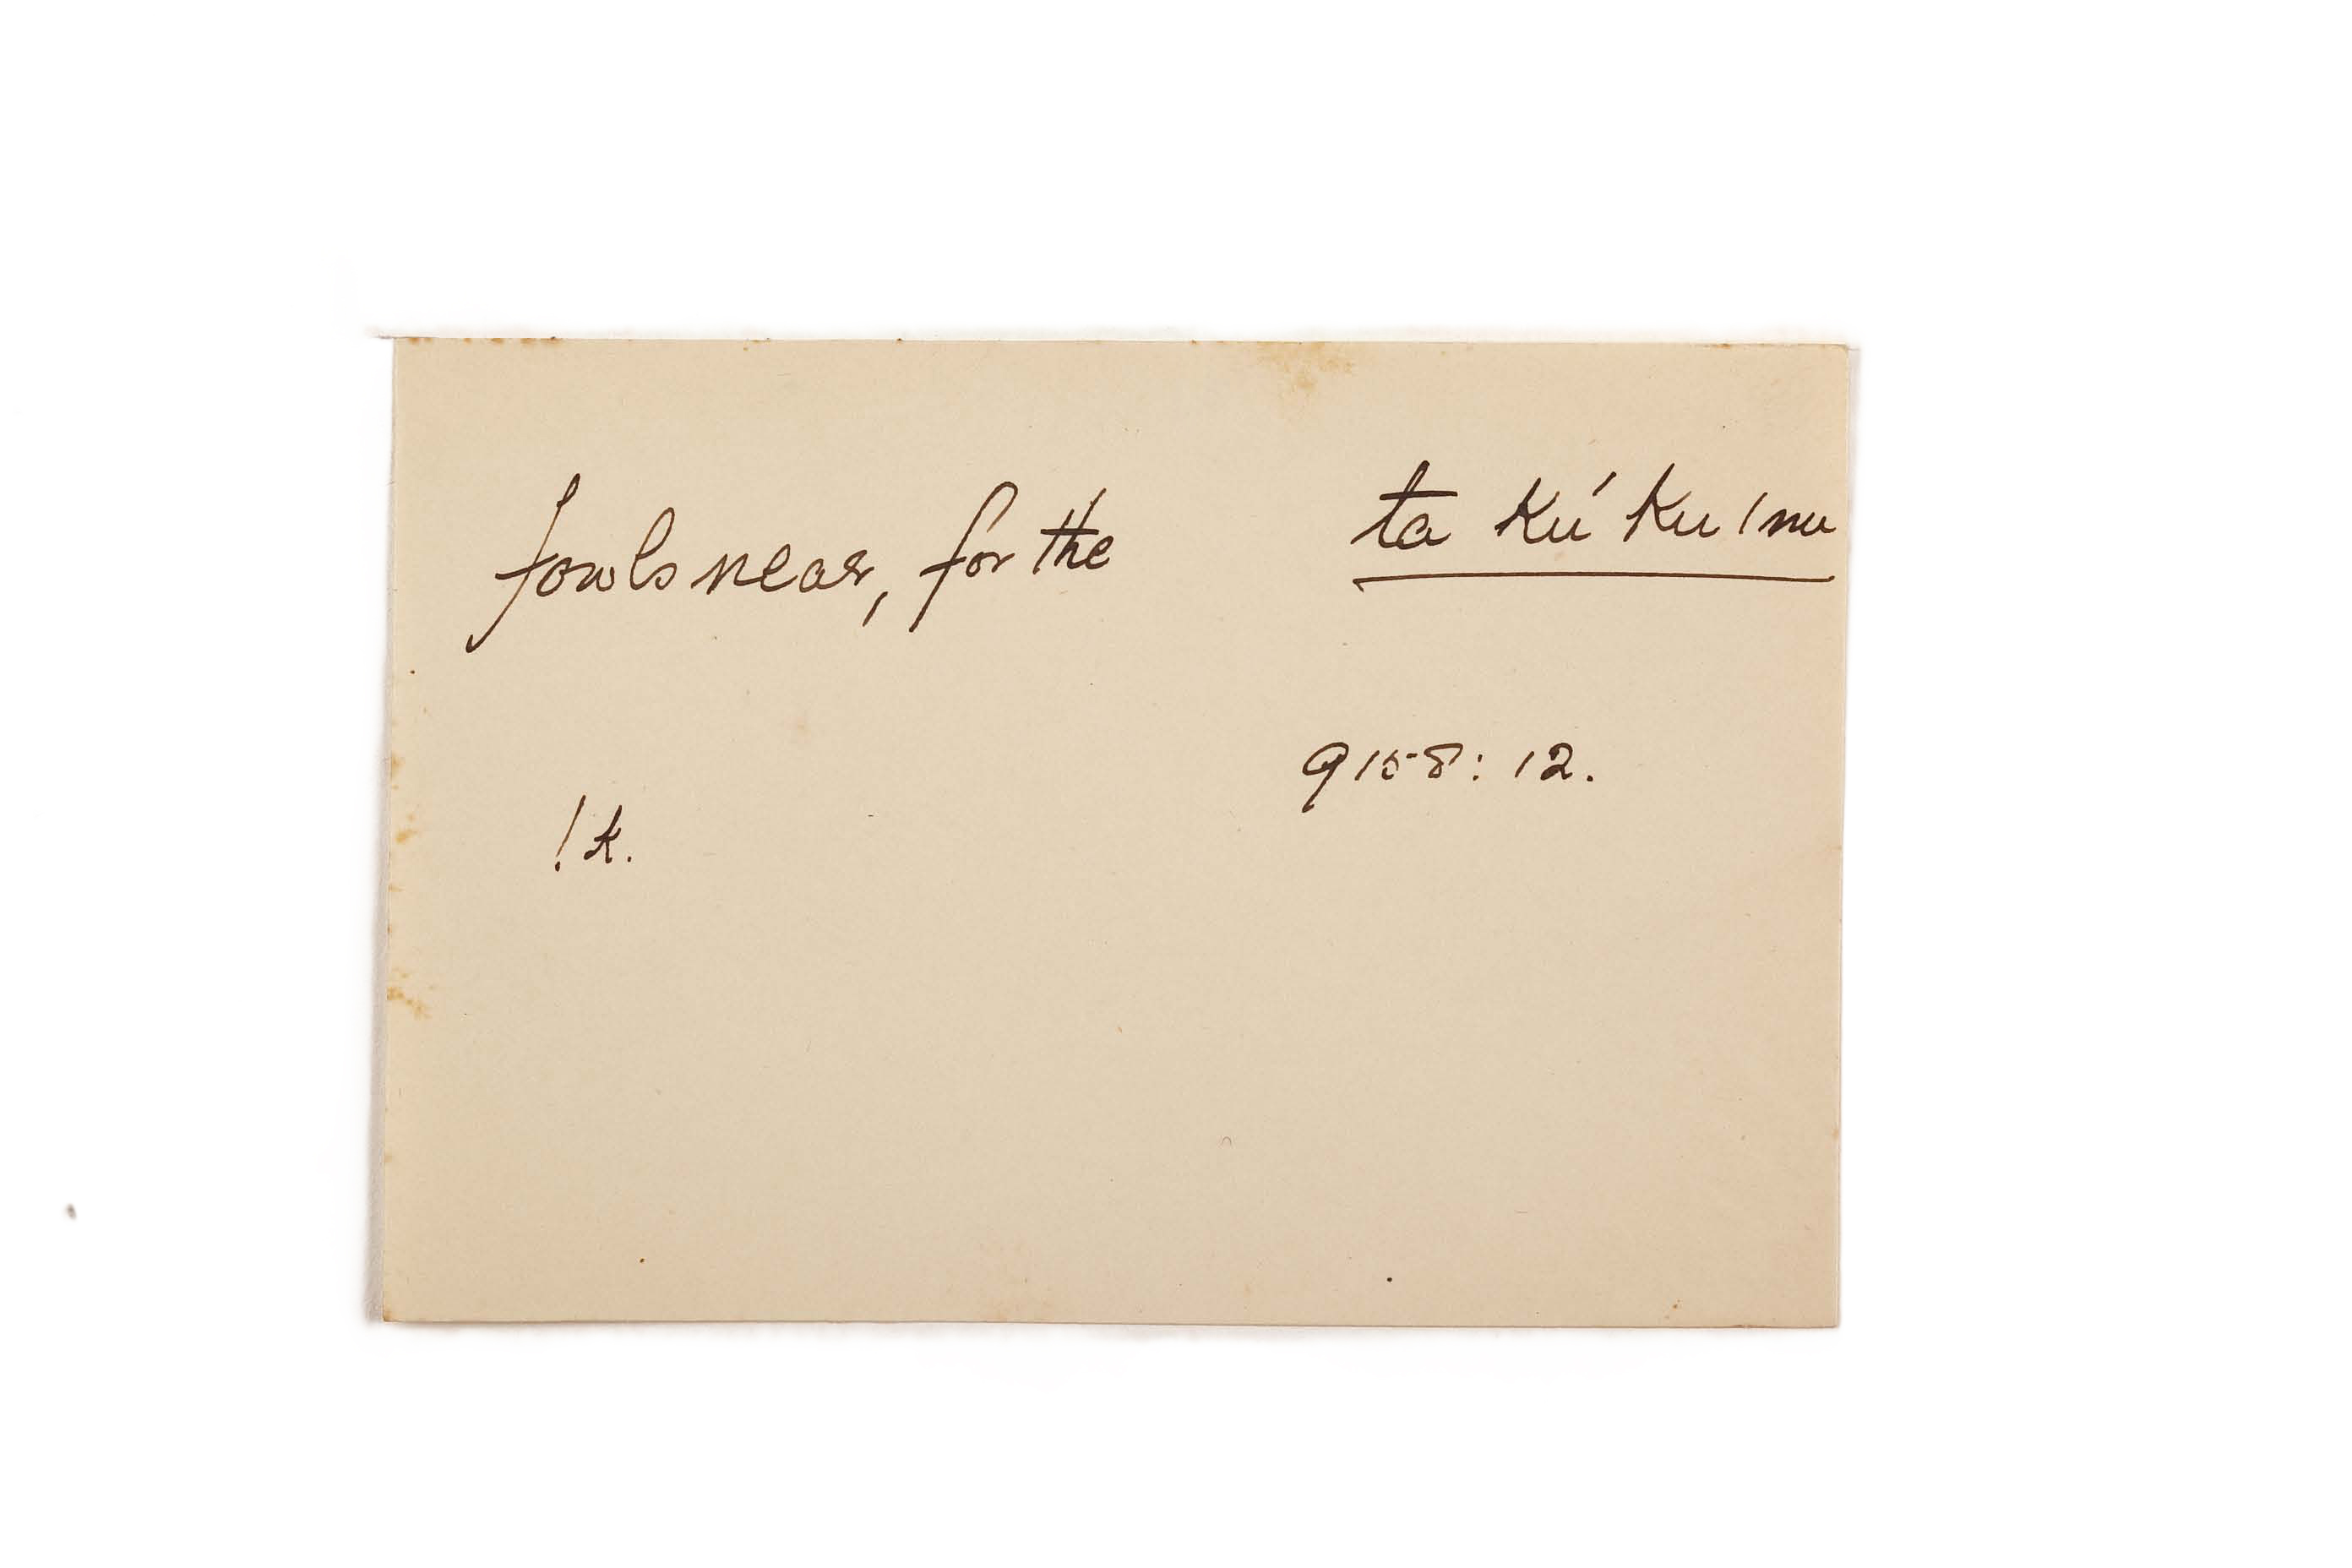 fowls near, for the ta kú ku /nu
9158: 12.
!k.